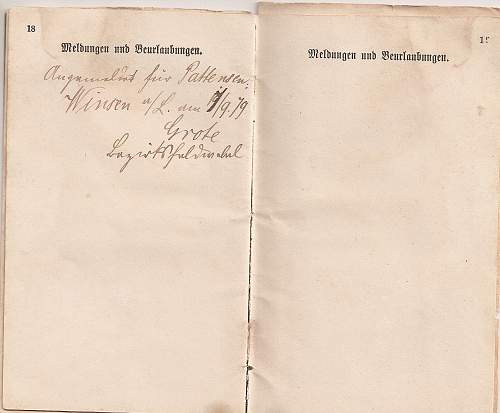 18
Meldungen und Beurlaubungen.
Angemeldet für Pattensen.
Winsen a/L. am /9.79
Grote
Bezirksfeldwebel
Meldungen und Beurlaubungen.